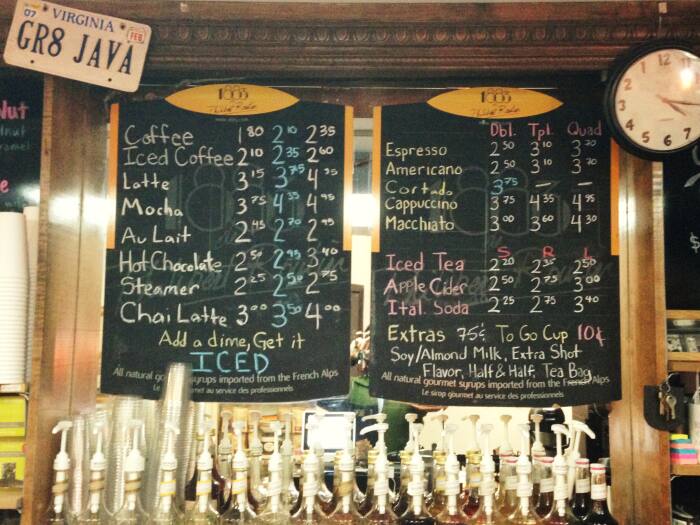 VIRGINIA
07
FEB
GR8 JAVA
Nut
1883
1883
Coffee 1 80 2 10 2 35
Iced Coffee 2 10 2 35 2 60
Latte 3 15 3 75 4 35
Mocha 3 75 4 35 4 95
Au Lait 2 45 2 70 2 95
Hot Chocolate 2 50 2 95 3 40
Steamer 2 25 2 50 2 75
Chai Latte 3 00 3 50 4 00
Add a dime, Get it
ICED
All natural gourmet syrups imported from the French Alps
Le sirop gourmet au service des professionnels
Dbl. Tpl. Quad
Espresso 2 50 3 10 3 70
Americano 2 50 3 10 3 70
Cortado 3 75 — —
Cappuccino 3 75 4 35 4 95
Macchiato 3 00 3 60 4 30
S R L
Iced Tea 2 20 2 35 2 50
Apple Cider 2 50 2 75 3 00
Ital. Soda 2 25 2 75 3 40
Extras 75¢ To Go Cup 10¢
Soy/Almond Milk, Extra Shot
Flavor, Half & Half, Tea Bag
All natural gourmet syrups imported from the French Alps
Le sirop gourmet au service des professionnels
12
1
2
3
4
5
6
7